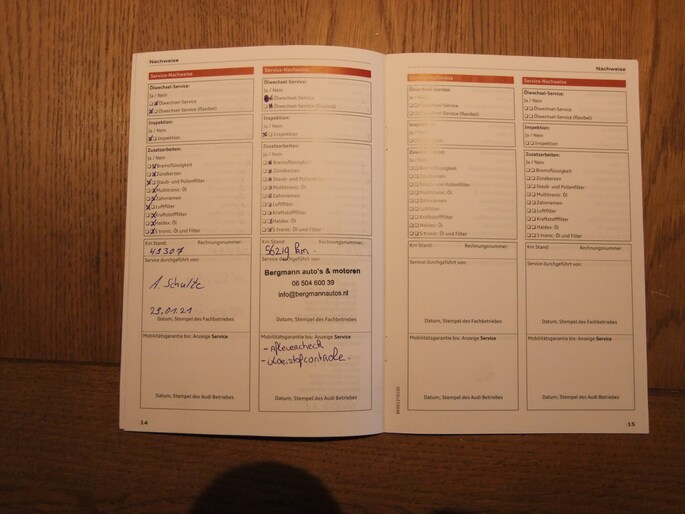 Nachweise
Service-Nachweise
Ölwechsel-Service:
Ja / Nein
Ölwechsel Service
Ölwechsel Service (flexibel)
Inspektion:
Ja / Nein
Inspektion
Zusatzarbeiten:
Ja / Nein
Bremsflüssigkeit
Zündkerzen
Staub- und Pollenfilter
Multitronic: Öl
Zahnriemen
Luftfilter
Kraftstofffilter
Haldex: Öl
S tronic: Öl und Filter
Km Stand: Rechnungsnummer:
45307
Service durchgeführt von:
A. Schultz
29.01.21
Datum, Stempel des Fachbetriebes
Mobilitätsgarantie bis: Anzeige Service
Datum, Stempel des Audi Betriebes
14
Service-Nachweise
Ölwechsel-Service:
Ja / Nein
Ölwechsel Service
Ölwechsel Service (flexibel)
Inspektion:
Ja / Nein
Inspektion
Zusatzarbeiten:
Ja / Nein
Bremsflüssigkeit
Zündkerzen
Staub- und Pollenfilter
Multitronic: Öl
Zahnriemen
Luftfilter
Kraftstofffilter
Haldex: Öl
S tronic: Öl und Filter
Km Stand: Rechnungsnummer:
56219 km.
Service durchgeführt von:
Bergmann auto's & motoren
06 504 600 39
info@bergmannautos.nl
Datum, Stempel des Fachbetriebes
Mobilitätsgarantie bis: Anzeige Service
- Aflevercheck
- vloeistofcontrole.
Datum, Stempel des Audi Betriebes
Nachweise
Service-Nachweise
Ölwechsel-Service:
Ja / Nein
Ölwechsel Service
Ölwechsel Service (flexibel)
Inspektion:
Ja / Nein
Inspektion
Zusatzarbeiten:
Ja / Nein
Bremsflüssigkeit
Zündkerzen
Staub- und Pollenfilter
Multitronic: Öl
Zahnriemen
Luftfilter
Kraftstofffilter
Haldex: Öl
S tronic: Öl und Filter
Km Stand: Rechnungsnummer:
Service durchgeführt von:
Datum, Stempel des Fachbetriebes
Mobilitätsgarantie bis: Anzeige Service
Datum, Stempel des Audi Betriebes
Service-Nachweise
Ölwechsel-Service:
Ja / Nein
Ölwechsel Service
Ölwechsel Service (flexibel)
Inspektion:
Ja / Nein
Inspektion
Zusatzarbeiten:
Ja / Nein
Bremsflüssigkeit
Zündkerzen
Staub- und Pollenfilter
Multitronic: Öl
Zahnriemen
Luftfilter
Kraftstofffilter
Haldex: Öl
S tronic: Öl und Filter
Km Stand: Rechnungsnummer:
Service durchgeführt von:
Datum, Stempel des Fachbetriebes
Mobilitätsgarantie bis: Anzeige Service
Datum, Stempel des Audi Betriebes
15